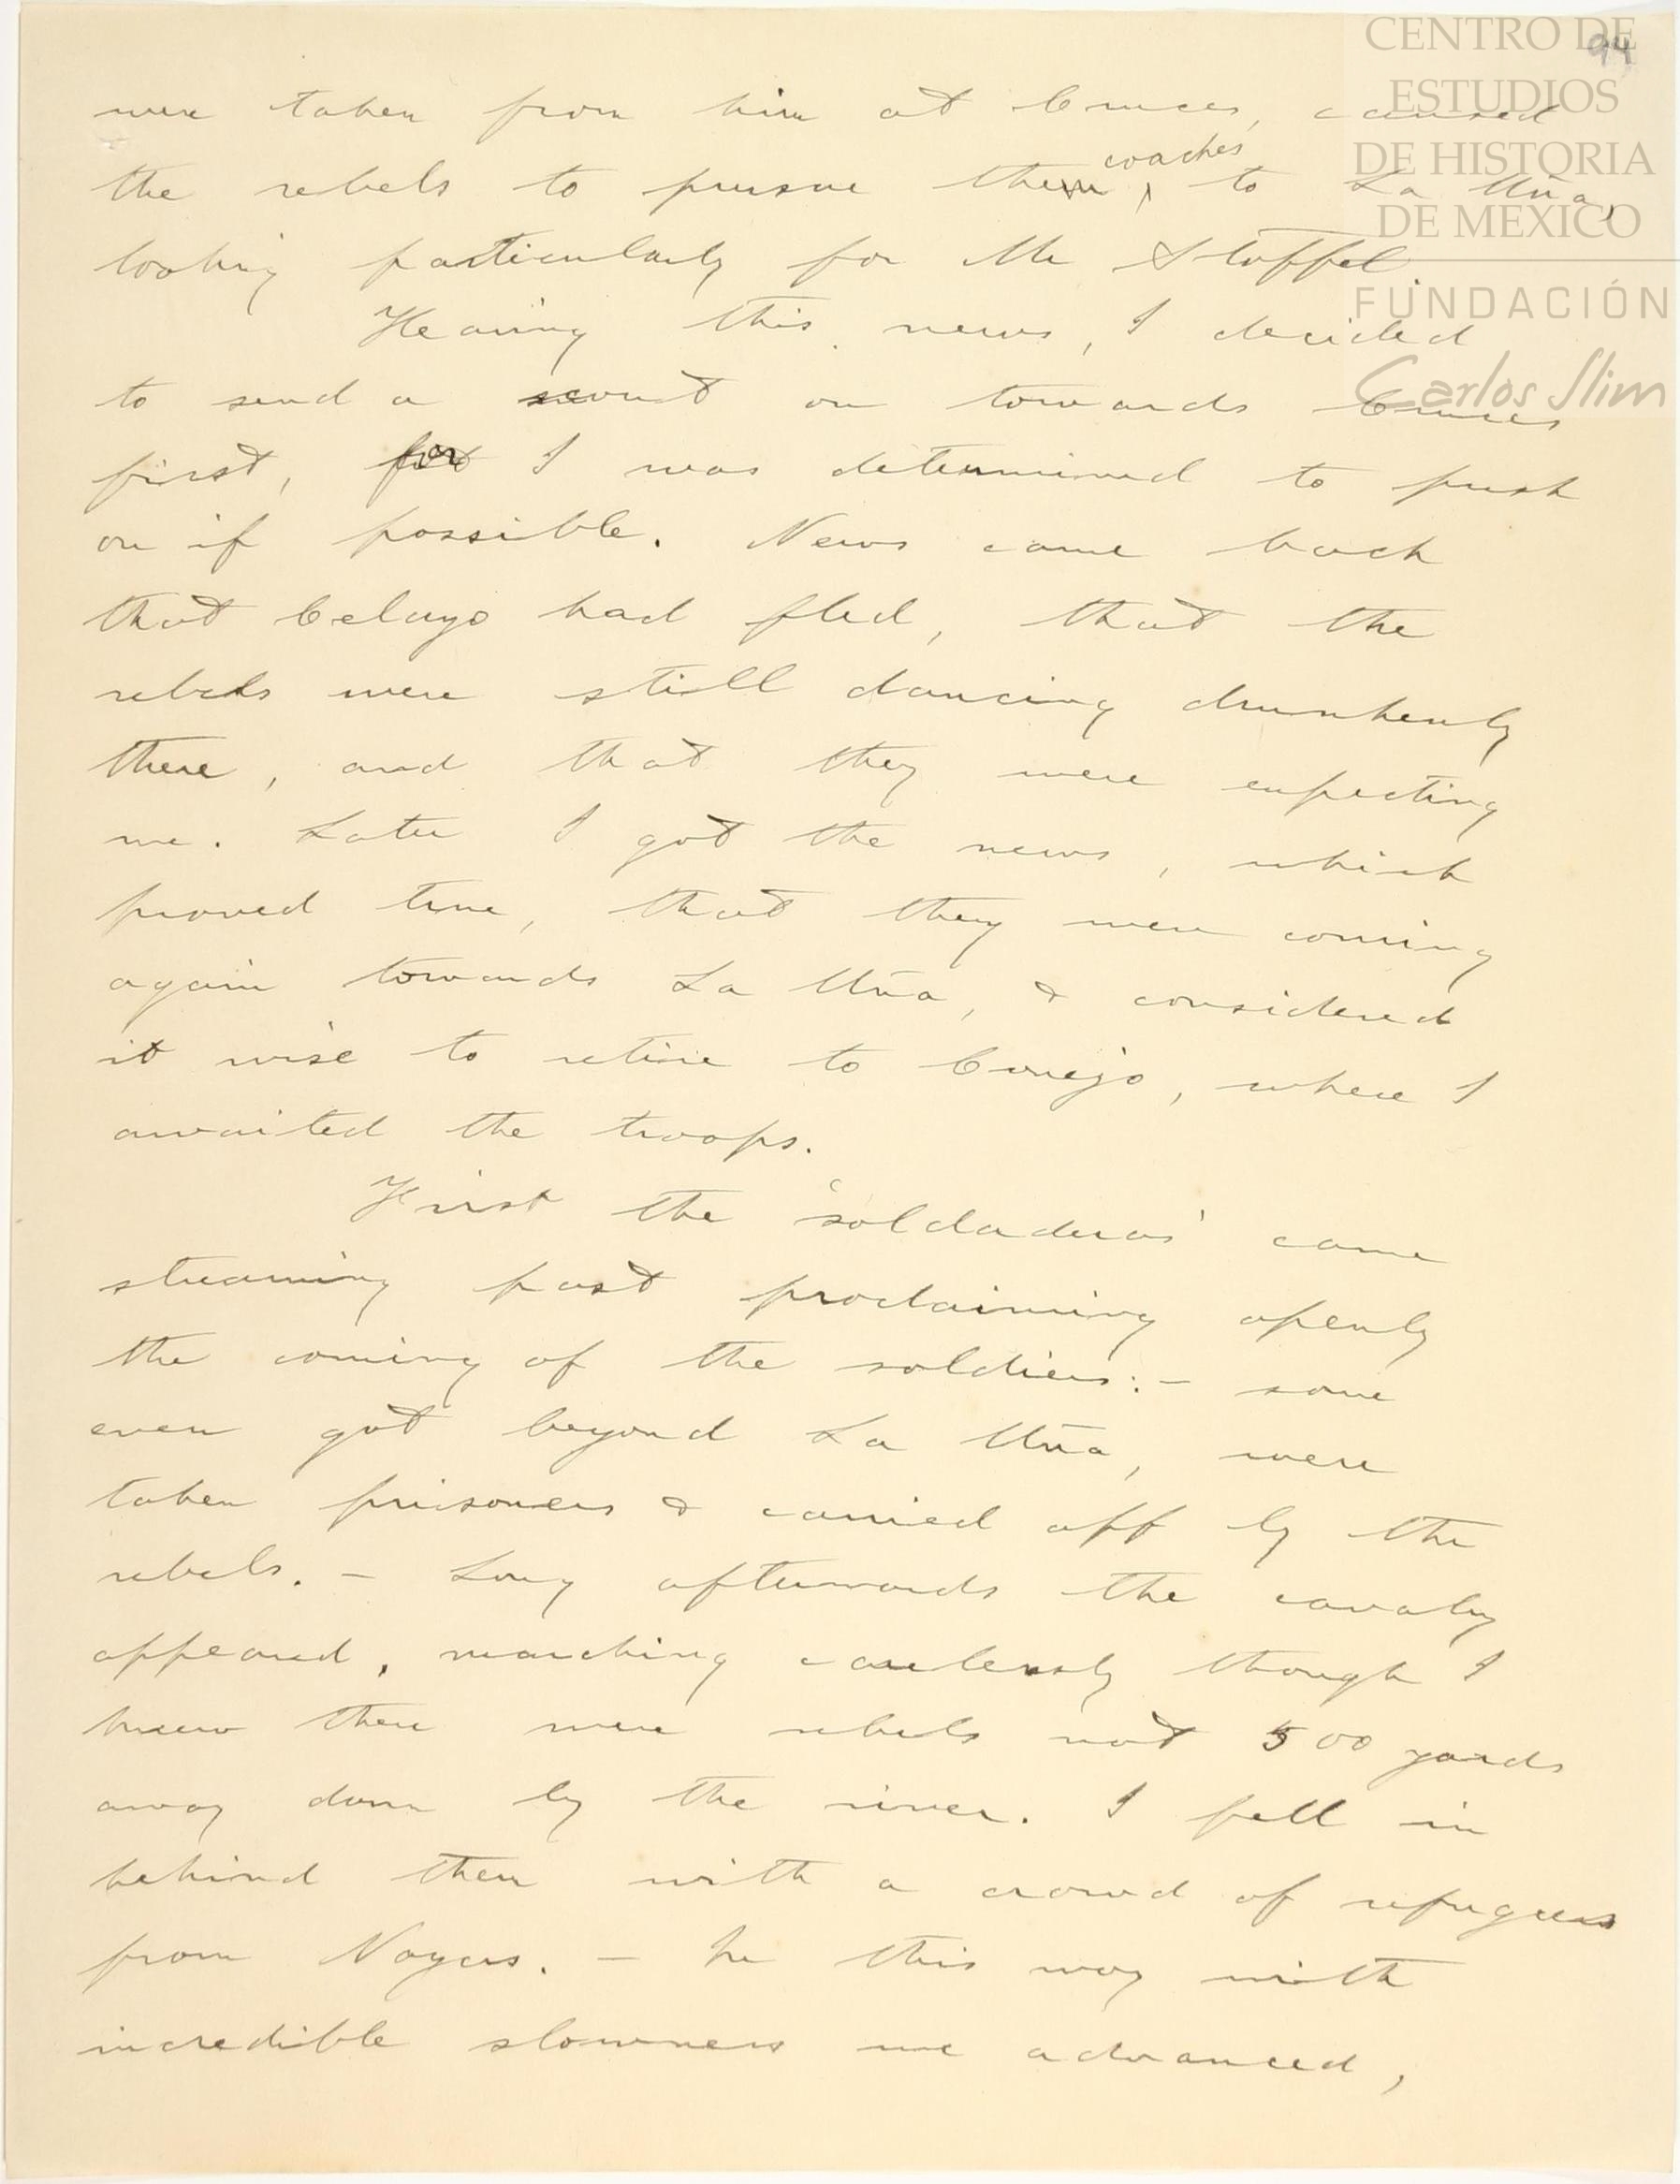 CENTRO DE
ESTUDIOS
DE HISTORIA
DE MEXICO
FUNDACIÓN
Carlos Slim
94
were taken from him at Cruces, caused
the rebels to pursue the coaches to La Uña,
looking particularly for Mr Stoffel
Hearing this news, I decided
to send a scout on towards Cruces
first, for I was determined to push
on if possible. News came back
that Celayo had fled, that the
rebels were still dancing drunkenly
there, and that they were expecting
me. Later I got the news, which
proved true, that they were coming
again towards La Uña, & considered
it wise to retire to Conejo, where I
awaited the troops.
First the 'soldaderas' came
streaming past proclaiming openly
the coming of the soldiers:- some
even got beyond La Uña, were
taken prisoners & carried off by the
rebels. - Long afterwards the cavalry
appeared, marching carelessly though I
knew there were rebels not 500 yards
away down by the river. I fell in
behind them with a crowd of refugees
from Noyas. - In this way with
incredible slowness we advanced,